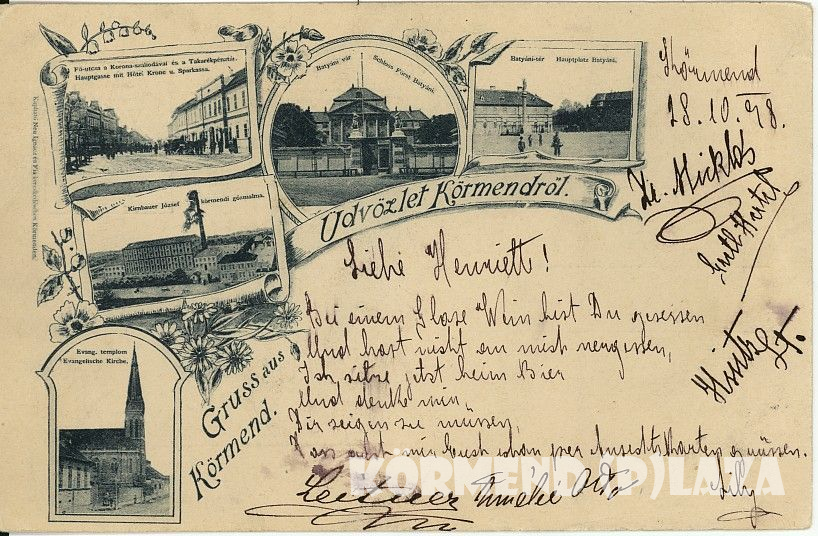 Fő-utcza a Korona-szállodával és a Takarékpénztár.
Hauptgasse mit Hôtel Krone u. Sparkassa.
Batyáni vár
Schloss Fürst Batyáni.
Batyáni-tér
Hauptplatz Batyáni.
Kirnbauer József körmendi gőzmalma.
Evang. templom
Evangelische Kirche.
Üdvözlet Körmendről.
Gruss aus
Körmend.
Körmend
28.10.98.
Dr. Miklós
Liebe Henriett!
Bei einem Glase Wein bist Du gesessen
Und hast nicht an mich vergessen,
Ich sitze jetzt beim Bier
Und denk mir,
Dir zeigen zu müssen,
Dass auch wir Euch schon per Ansichtskarten grüssen.
Lily
KÖRMENDI(P)LAKA